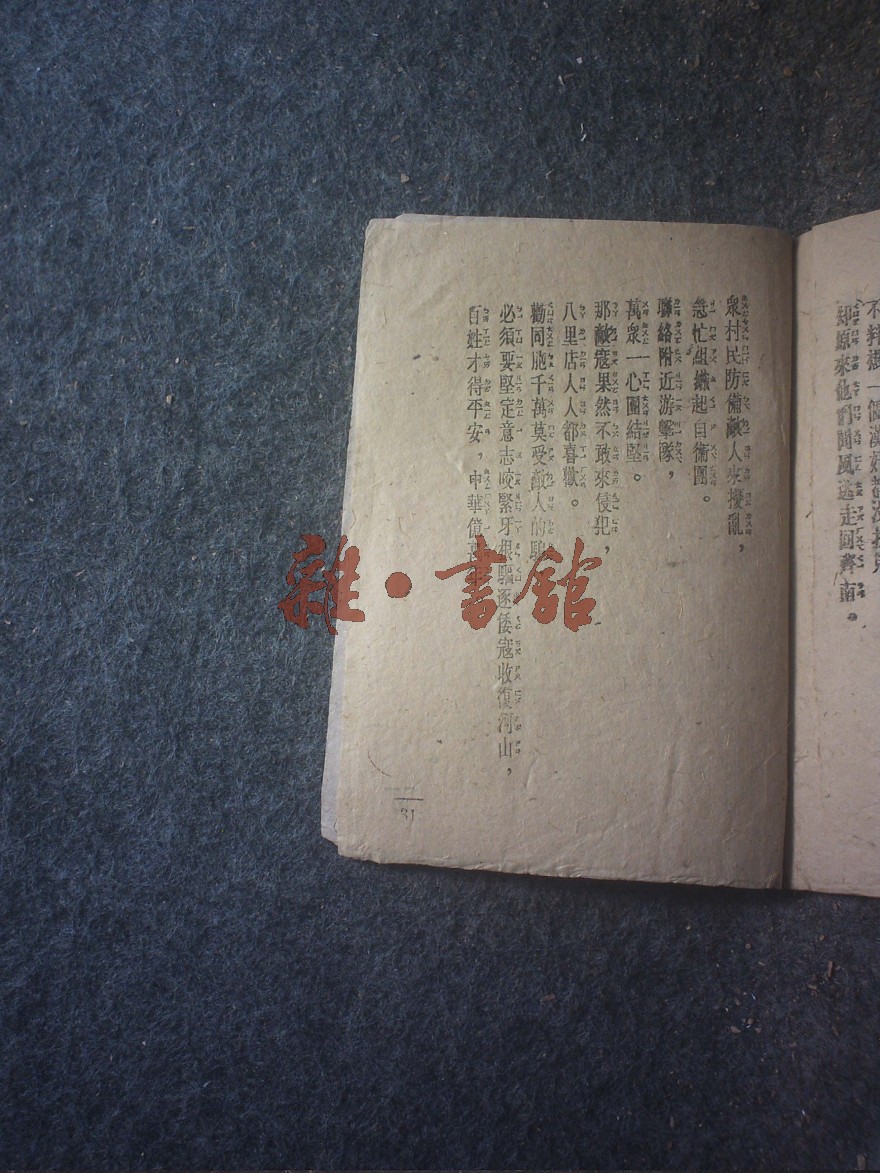 不料想一個漢奸都沒捉見
却原來他們聞風逃走回齊南。
衆村民防備敵人來擾亂，
急忙組織起自衛團。
聯絡附近游擊隊，
萬衆一心團結堅。
那敵寇果然不敢來侵犯，
八里店人人都喜歡。
勸同胞千萬莫受敵人的騙
必須要堅定意志咬緊牙根驅逐倭寇收復河山，
百姓才得平安，中華億萬
31
雜·書館